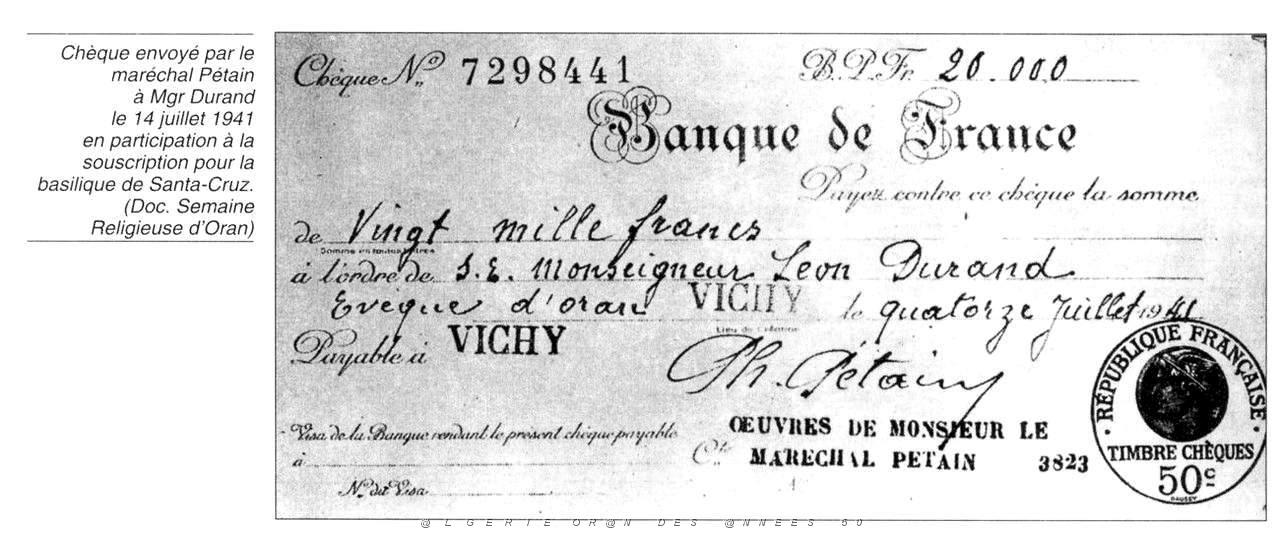 Chèque envoyé par le
maréchal Pétain
à Mgr Durand
le 14 juillet 1941
en participation à la
souscription pour la
basilique de Santa-Cruz.
(Doc. Semaine
Religieuse d'Oran)
Chèque No 7298441 B.P.Fr. 20.000
Banque de France
Payez contre ce chèque la somme
de Vingt mille francs
Somme en toutes lettres
à l'ordre de S.E. Monseigneur Leon Durand
Evêque d'oran VICHY le quatorze Juillet 1941
Lieu de création
Payable à VICHY
Ph. Pétain
Visa de la Banque rendant le présent chèque payable
à
No du Visa
Cte
ŒUVRES DE MONSIEUR LE
MARECHAL PETAIN 3823
RÉPUBLIQUE FRANÇAISE
TIMBRE CHÈQUES
50c
@LGERIE OR@N DES @NNEES 50